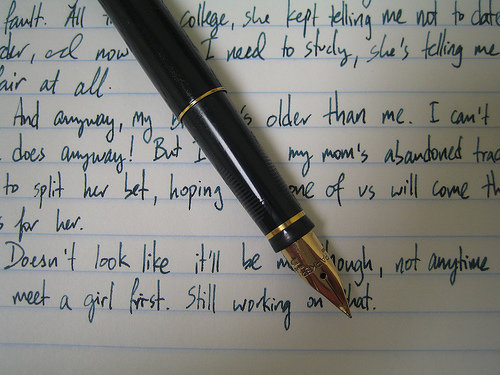 fault. All college, she kept telling me not to date
and now I need to study, she's telling me
fair at all.
And anyway, my older than me. I can't
does anyway! But I my mom's abandoned
to split her bet, hoping one of us will come
for her.
Doesn't look like it'll be though, not anytime
meet a girl first. Still working on that.